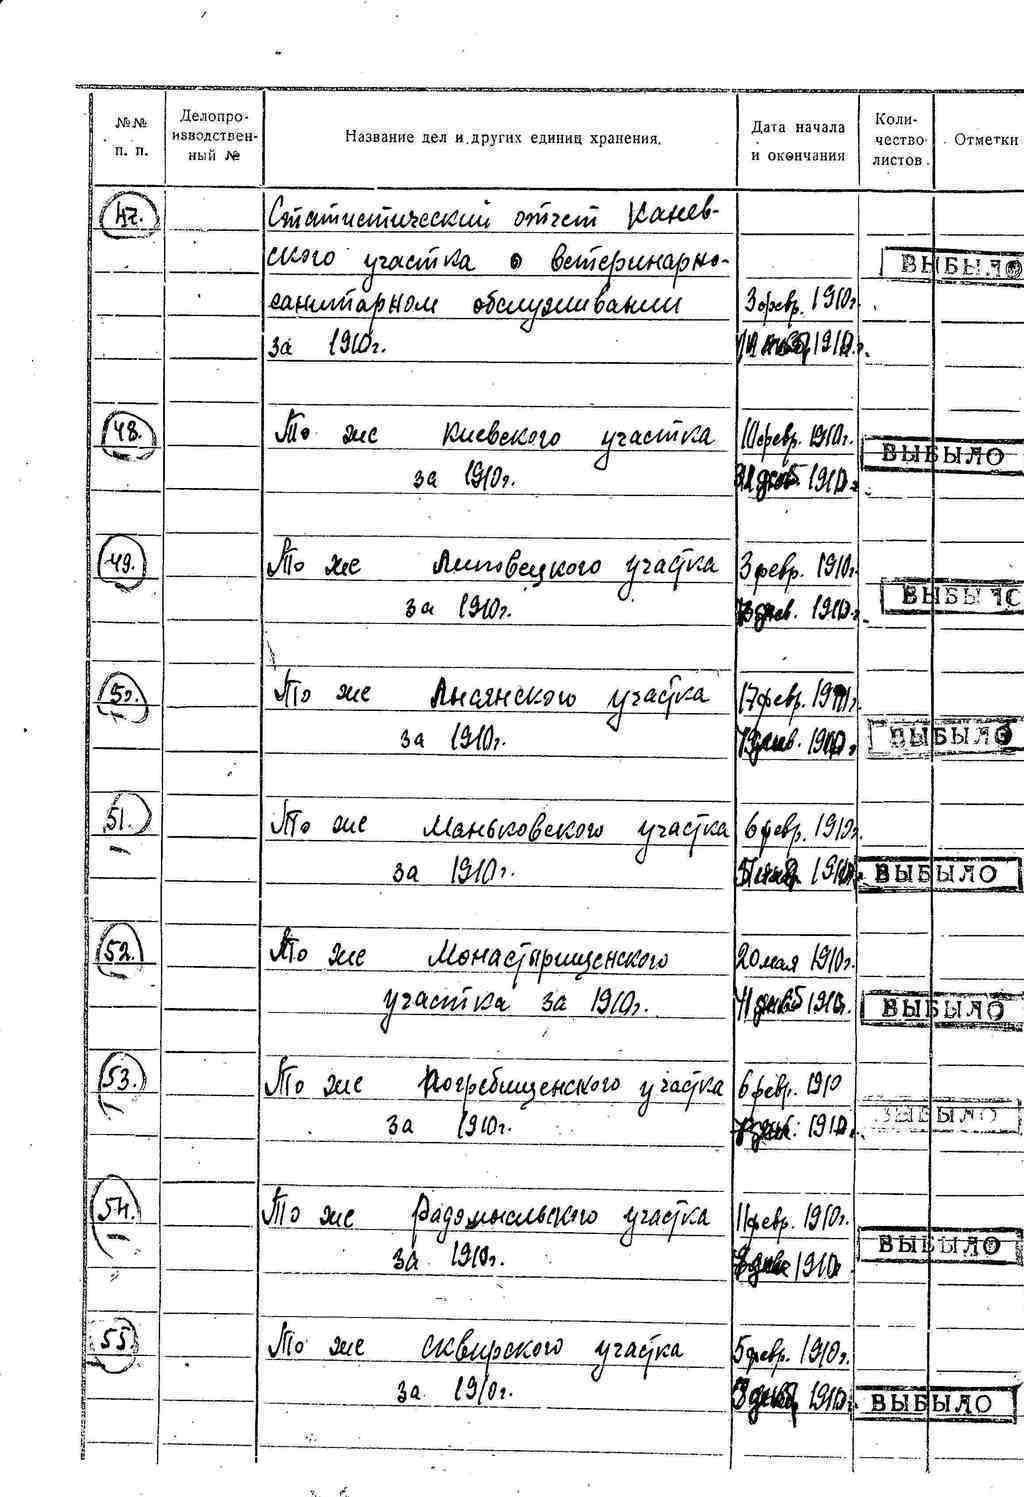 №№ п. п.
Делопро-
изводствен-
ный №
Название дел и других единиц хранения.
Дата начала
и окончания
Коли-
чество
листов.
Отметки
47.
Статистический отчет Канев-
ского участка о ветеринарно-
санитарном обслуживании
3 февр. 1910г.
за 1910г.
1910г.
ВЫБЫЛО
48.
То же Киевского участка
10 февр. 1910г.
за 1910г.
1910г.
ВЫБЫЛО
49.
То же Липовецкого участка
3 февр. 1910г.
за 1910г.
1910г.
ВЫБЫЛО
50.
То же Лисянского участка
17 февр.
за 1910г.
1910г.
ВЫБЫЛО
51.
То же Маньковского участка
6 февр. 1910г.
за 1910г.
ВЫБЫЛО
52.
То же Монастырищенского
20 мая 1910г.
участка за 1910г.
1910г.
ВЫБЫЛО
53.
То же Погребищенского участка
6 февр. 1910
за 1910г.
1910г.
ВЫБЫЛО
54.
То же Радомысльского участка
11 февр. 1910г.
за 1910г.
1910г.
ВЫБЫЛО
55.
То же Сквирского участка
5 февр. 1910г.
за 1910г.
1910г.
ВЫБЫЛО